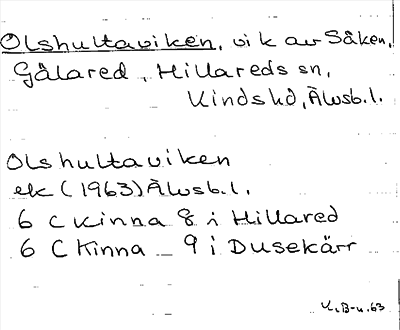 Olshultaviken, vik av Såken,
Gålared, Hillareds sn,
Kinds hd, Älvsb.l.
Olshultaviken
ek (1963) Älvsb.l.
6 C Kinna 8 i Hillared
6 C Kinna _ 9 i Dusekärr
K.B-u.63